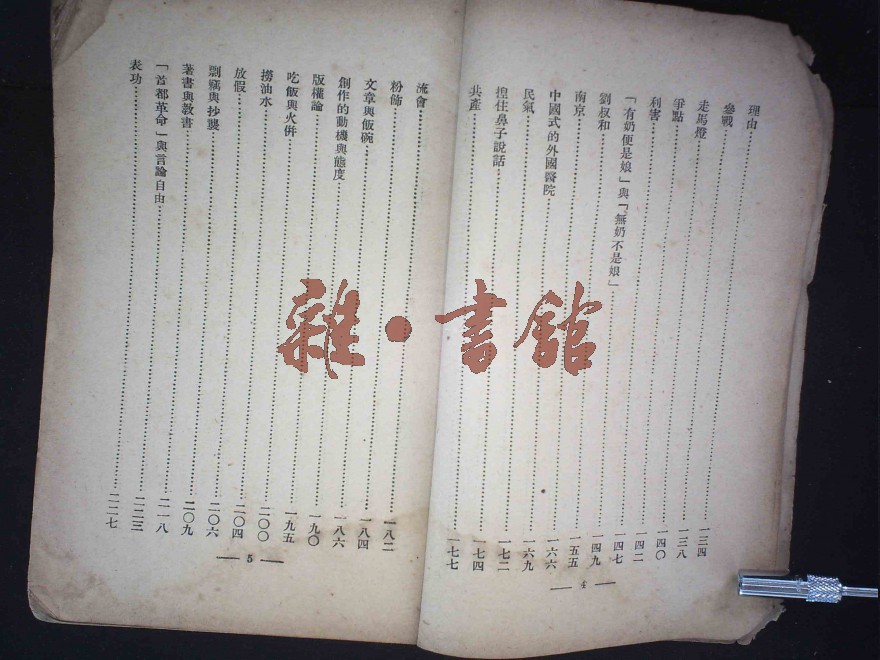 理由……一三四
參戰……一三八
走馬燈……一四〇
爭點……一四二
利害……一四七
「有奶便是娘」與「無奶不是娘」……一四九
劉叔和……一五五
南京……一六六
中國式的外國醫院……一六九
民氣……一七二
捏住鼻子說話……一七四
共產……一七七
— 4 —
流會……一八二
粉飾……一八四
文章與飯碗……一八六
創作的動機與態度……一九〇
版權論……一九五
吃飯與火併……二〇〇
撈油水……二〇四
放假……二〇六
剽竊與抄襲……二〇九
著書與教書……二一八
「首都革命」與言論自由……二二三
表功……二二七
— 5 —
雜·書館